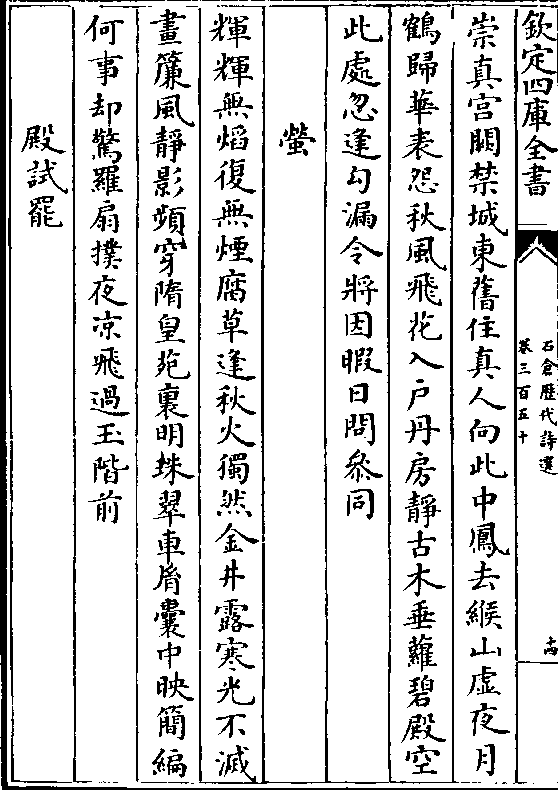 欽定四庫全書
石倉歷代詩選
卷三百五十
十四
崇真宫闕禁城東舊住真人向此中鳳去緱山虚夜月
鶴歸華表怨秋風飛花入户丹房靜古木垂蘿碧殿空
此處忽逢勾漏令將因暇日問叅同
螢
輝輝無焰復無煙腐草逢秋火獨然金井露寒光不滅
畫簾風靜影頻穿隋皇苑裏明珠翠車脀囊中映簡編
何事却驚羅扇撲夜凉飛過玉階前
殿試罷